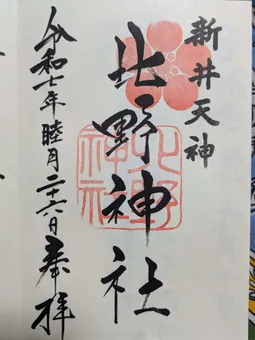 新井天神
北野神社
令和七年睦月二十六日奉拝
北野神社